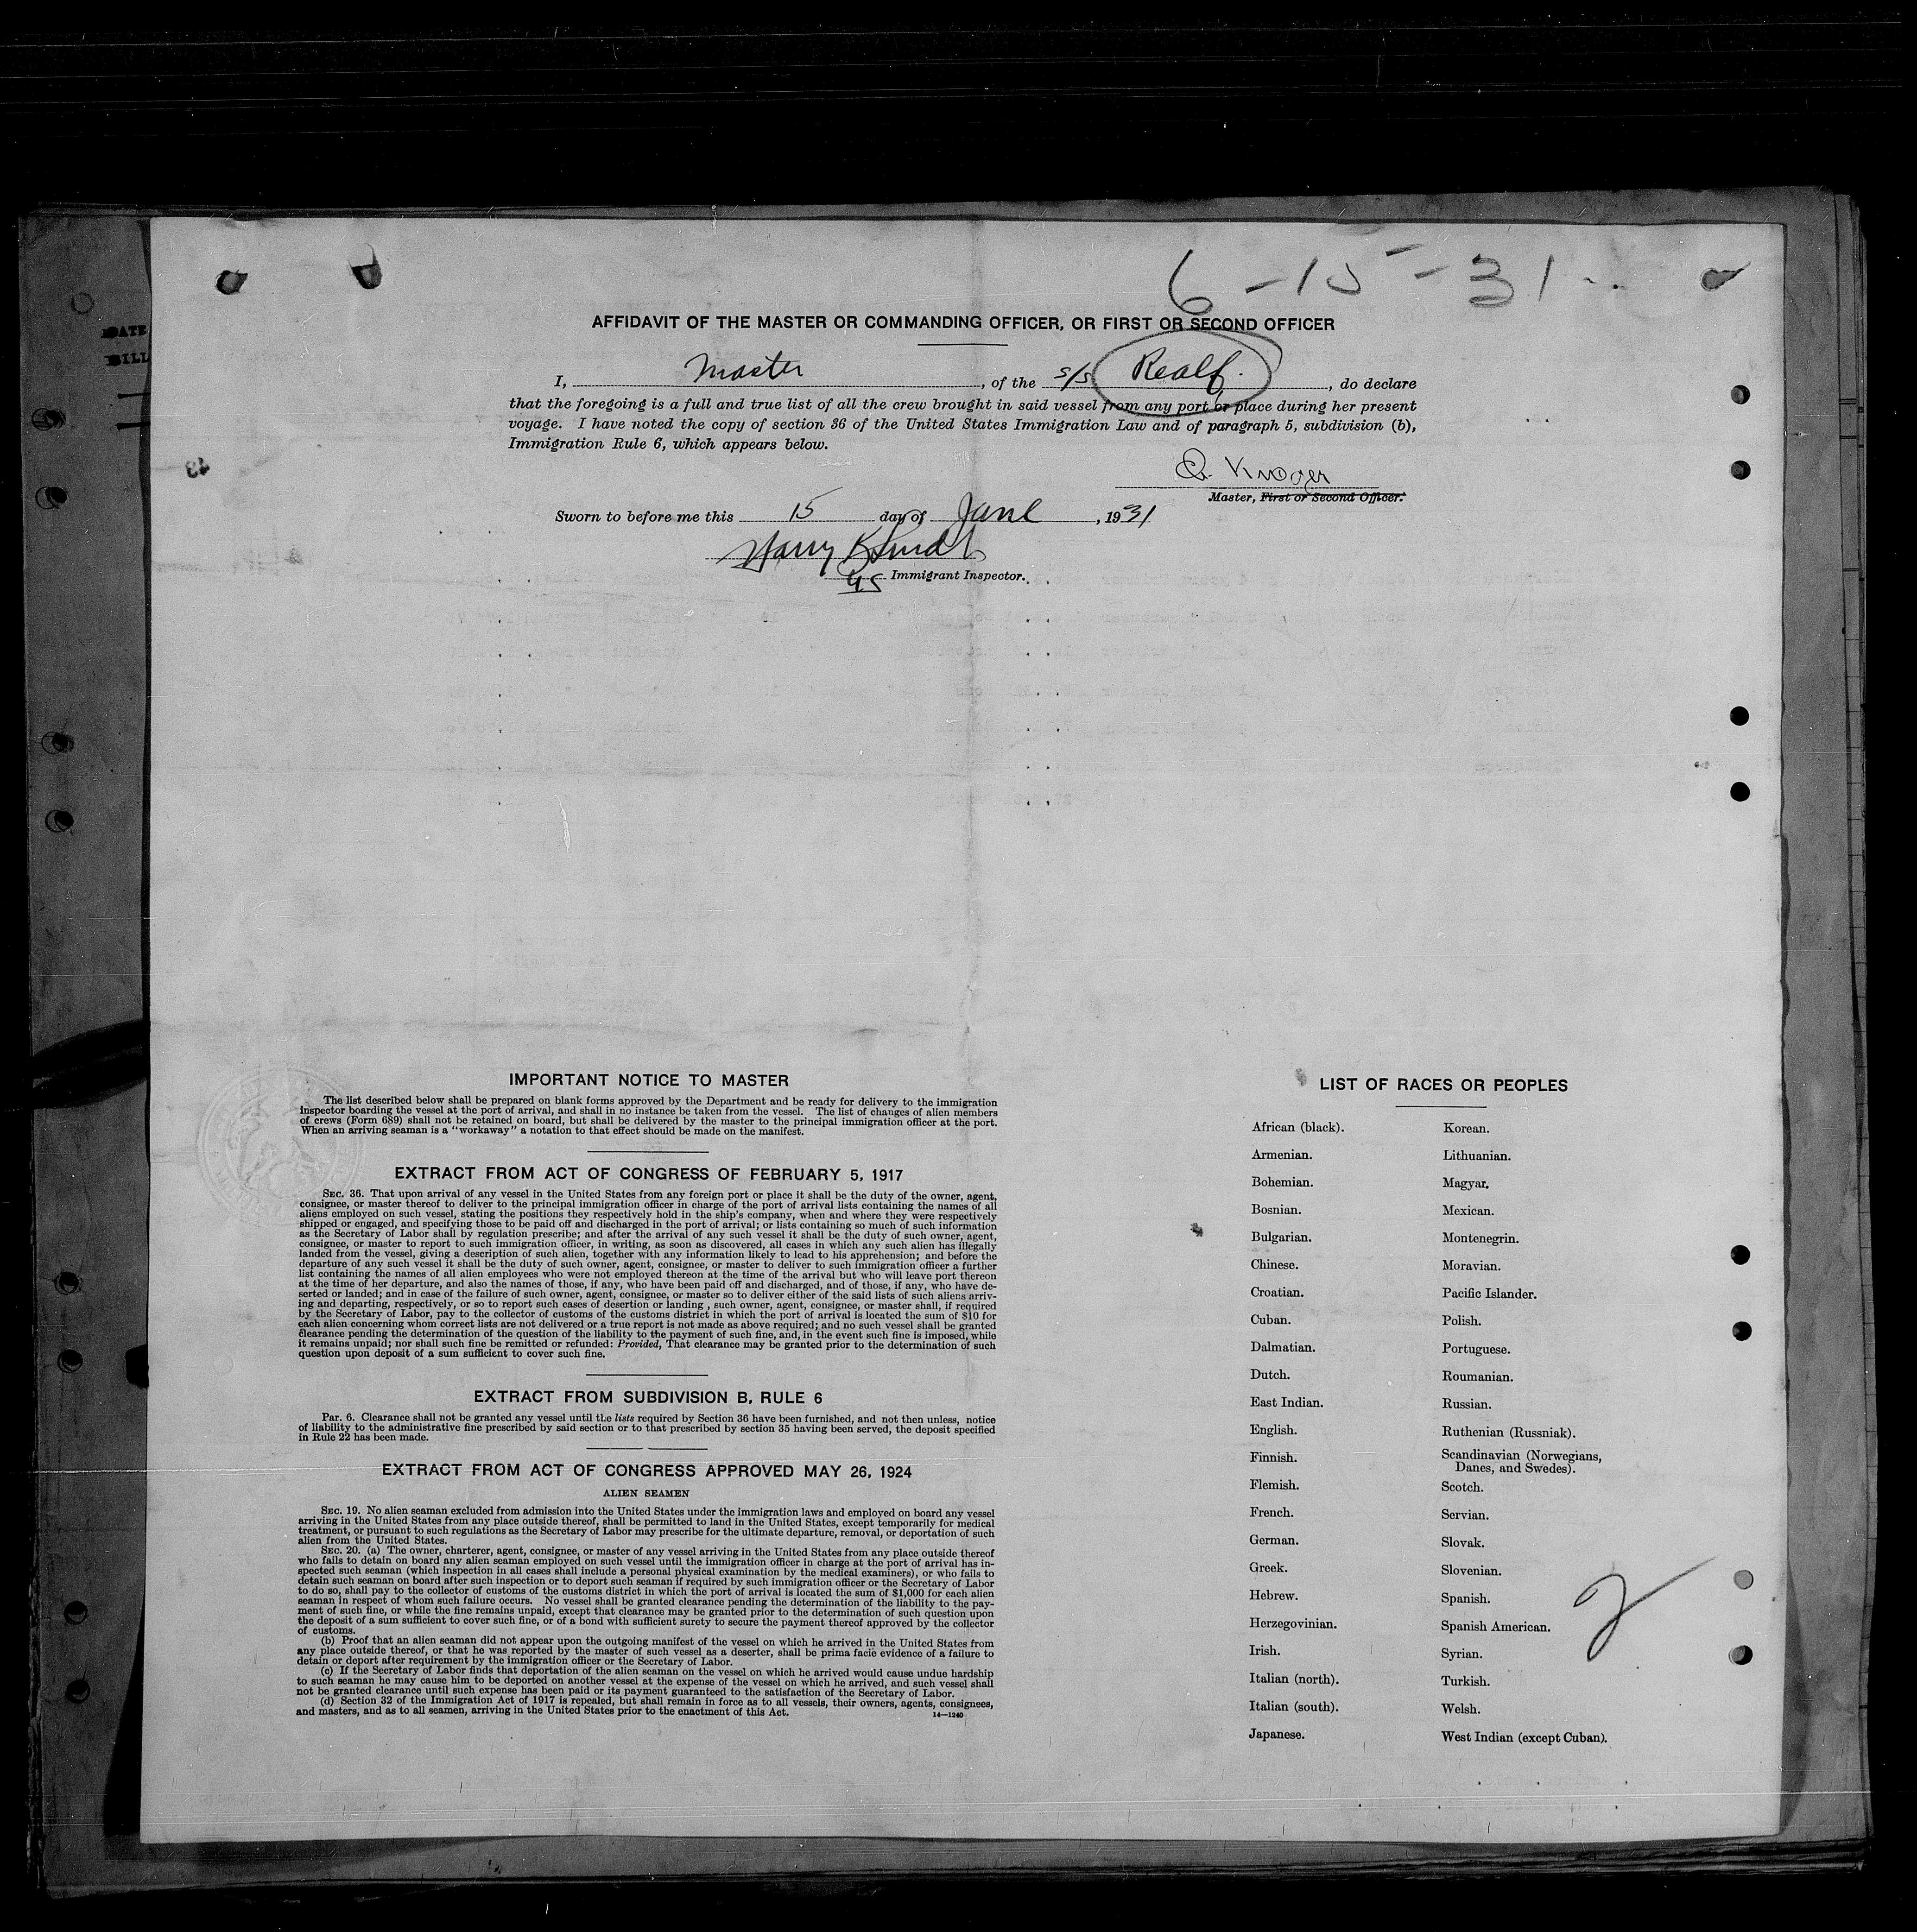 6-15-31
DATE
BILL
AFFIDAVIT OF THE MASTER OR COMMANDING OFFICER, OR FIRST OR SECOND OFFICER
I, Master, of the s/s Realf., do declare
that the foregoing is a full and true list of all the crew brought in said vessel from any port or place during her present
voyage. I have noted the copy of section 36 of the United States Immigration Law and of paragraph 5, subdivision (b),
Immigration Rule 6, which appears below.
43
Master, First or Second Officer.
Sworn to before me this 15 day of June, 1931
Harry
US Immigrant Inspector.
IMPORTANT NOTICE TO MASTER
The list described below shall be prepared on blank forms approved by the Department and be ready for delivery to the immigration
inspector boarding the vessel at the port of arrival, and shall in no instance be taken from the vessel. The list of changes of alien members
of crews (Form 689) shall not be retained on board, but shall be delivered by the master to the principal immigration officer at the port.
When an arriving seaman is a "workaway" a notation to that effect should be made on the manifest.
EXTRACT FROM ACT OF CONGRESS OF FEBRUARY 5, 1917
SEC. 36. That upon arrival of any vessel in the United States from any foreign port or place it shall be the duty of the owner, agent,
consignee, or master thereof to deliver to the principal immigration officer in charge of the port of arrival lists containing the names of all
aliens employed on such vessel, stating the positions they respectively hold in the ship's company, when and where they were respectively
shipped or engaged, and specifying those to be paid off and discharged in the port of arrival; or lists containing so much of such information
as the Secretary of Labor shall by regulation prescribe; and after the arrival of any such vessel it shall be the duty of such owner, agent,
consignee, or master to report to such immigration officer, in writing, as soon as discovered, all cases in which any such alien has illegally
landed from the vessel, giving a description of such alien, together with any information likely to lead to his apprehension; and before the
departure of any such vessel it shall be the duty of such owner, agent, consignee, or master to deliver to such immigration officer a further
list containing the names of all alien employees who were not employed thereon at the time of the arrival but who will leave port thereon
at the time of her departure, and also the names of those, if any, who have been paid off and discharged, and of those, if any, who have de-
serted or landed; and in case of the failure of such owner, agent, consignee, or master so to deliver either of the said lists of such aliens arriv-
ing and departing, respectively, or so to report such cases of desertion or landing, such owner, agent, consignee, or master shall, if required
by the Secretary of Labor, pay to the collector of customs of the customs district in which the port of arrival is located the sum of $10 for
each alien concerning whom correct lists are not delivered or a true report is not made as above required; and no such vessel shall be granted
clearance pending the determination of the question of the liability to the payment of such fine, and, in the event such fine is imposed, while
it remains unpaid; nor shall such fine be remitted or refunded: Provided, That clearance may be granted prior to the determination of such
question upon deposit of a sum sufficient to cover such fine.
EXTRACT FROM SUBDIVISION B, RULE 6
Par. 6. Clearance shall not be granted any vessel until the lists required by Section 36 have been furnished, and not then unless, notice
of liability to the administrative fine prescribed by said section or to that prescribed by section 35 having been served, the deposit specified
in Rule 22 has been made.
EXTRACT FROM ACT OF CONGRESS APPROVED MAY 26, 1924
ALIEN SEAMEN
SEC. 19. No alien seaman excluded from admission into the United States under the immigration laws and employed on board any vessel
arriving in the United States from any place outside thereof, shall be permitted to land in the United States, except temporarily for medical
treatment, or pursuant to such regulations as the Secretary of Labor may prescribe for the ultimate departure, removal, or deportation of such
alien from the United States.
SEC. 20. (a) The owner, charterer, agent, consignee, or master of any vessel arriving in the United States from any place outside thereof
who fails to detain on board any alien seaman employed on such vessel until the immigration officer in charge at the port of arrival has in-
spected such seaman (which inspection in all cases shall include a personal physical examination by the medical examiners), or who fails to
detain such seaman on board after such inspection or to deport such seaman if required by such immigration officer or the Secretary of Labor
to do so, shall pay to the collector of customs of the customs district in which the port of arrival is located the sum of $1,000 for each alien
seaman in respect of whom such failure occurs. No vessel shall be granted clearance pending the determination of the liability to the pay-
ment of such fine, or while the fine remains unpaid, except that clearance may be granted prior to the determination of such question upon
the deposit of a sum sufficient to cover such fine, or of a bond with sufficient surety to secure the payment thereof approved by the collector
of customs.
(b) Proof that an alien seaman did not appear upon the outgoing manifest of the vessel on which he arrived in the United States from
any place outside thereof, or that he was reported by the master of such vessel as a deserter, shall be prima facie evidence of a failure to
detain or deport after requirement by the immigration officer or the Secretary of Labor.
(c) If the Secretary of Labor finds that deportation of the alien seaman on the vessel on which he arrived would cause undue hardship
to such seaman he may cause him to be deported on another vessel at the expense of the vessel on which he arrived, and such vessel shall
not be granted clearance until such expense has been paid or its payment guaranteed to the satisfaction of the Secretary of Labor.
(d) Section 32 of the Immigration Act of 1917 is repealed, but shall remain in force as to all vessels, their owners, agents, consignees,
and masters, and as to all seamen, arriving in the United States prior to the enactment of this Act.
14—1240
LIST OF RACES OR PEOPLES
African (black).
Armenian.
Bohemian.
Bosnian.
Bulgarian.
Chinese.
Croatian.
Cuban.
Dalmatian.
Dutch.
East Indian.
English.
Finnish.
Flemish.
French.
German.
Greek.
Hebrew.
Herzegovinian.
Irish.
Italian (north).
Italian (south).
Japanese.
Korean.
Lithuanian.
Magyar.
Mexican.
Montenegrin.
Moravian.
Pacific Islander.
Polish.
Portuguese.
Roumanian.
Russian.
Ruthenian (Russniak).
Scandinavian (Norwegians,
Danes, and Swedes).
Scotch.
Servian.
Slovak.
Slovenian.
Spanish.
Spanish American.
Syrian.
Turkish.
Welsh.
West Indian (except Cuban).
2